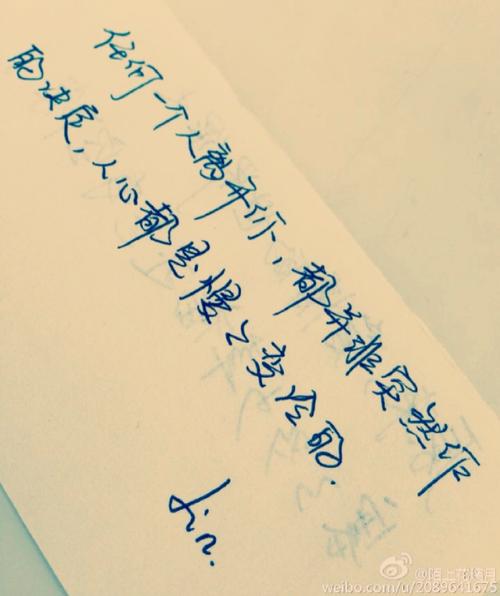 任何一个人离开你，都并非突然作
的决定，人心都是慢々变冷的.
Jin.
@陌上花掩月
weibo.com/u/2089641675